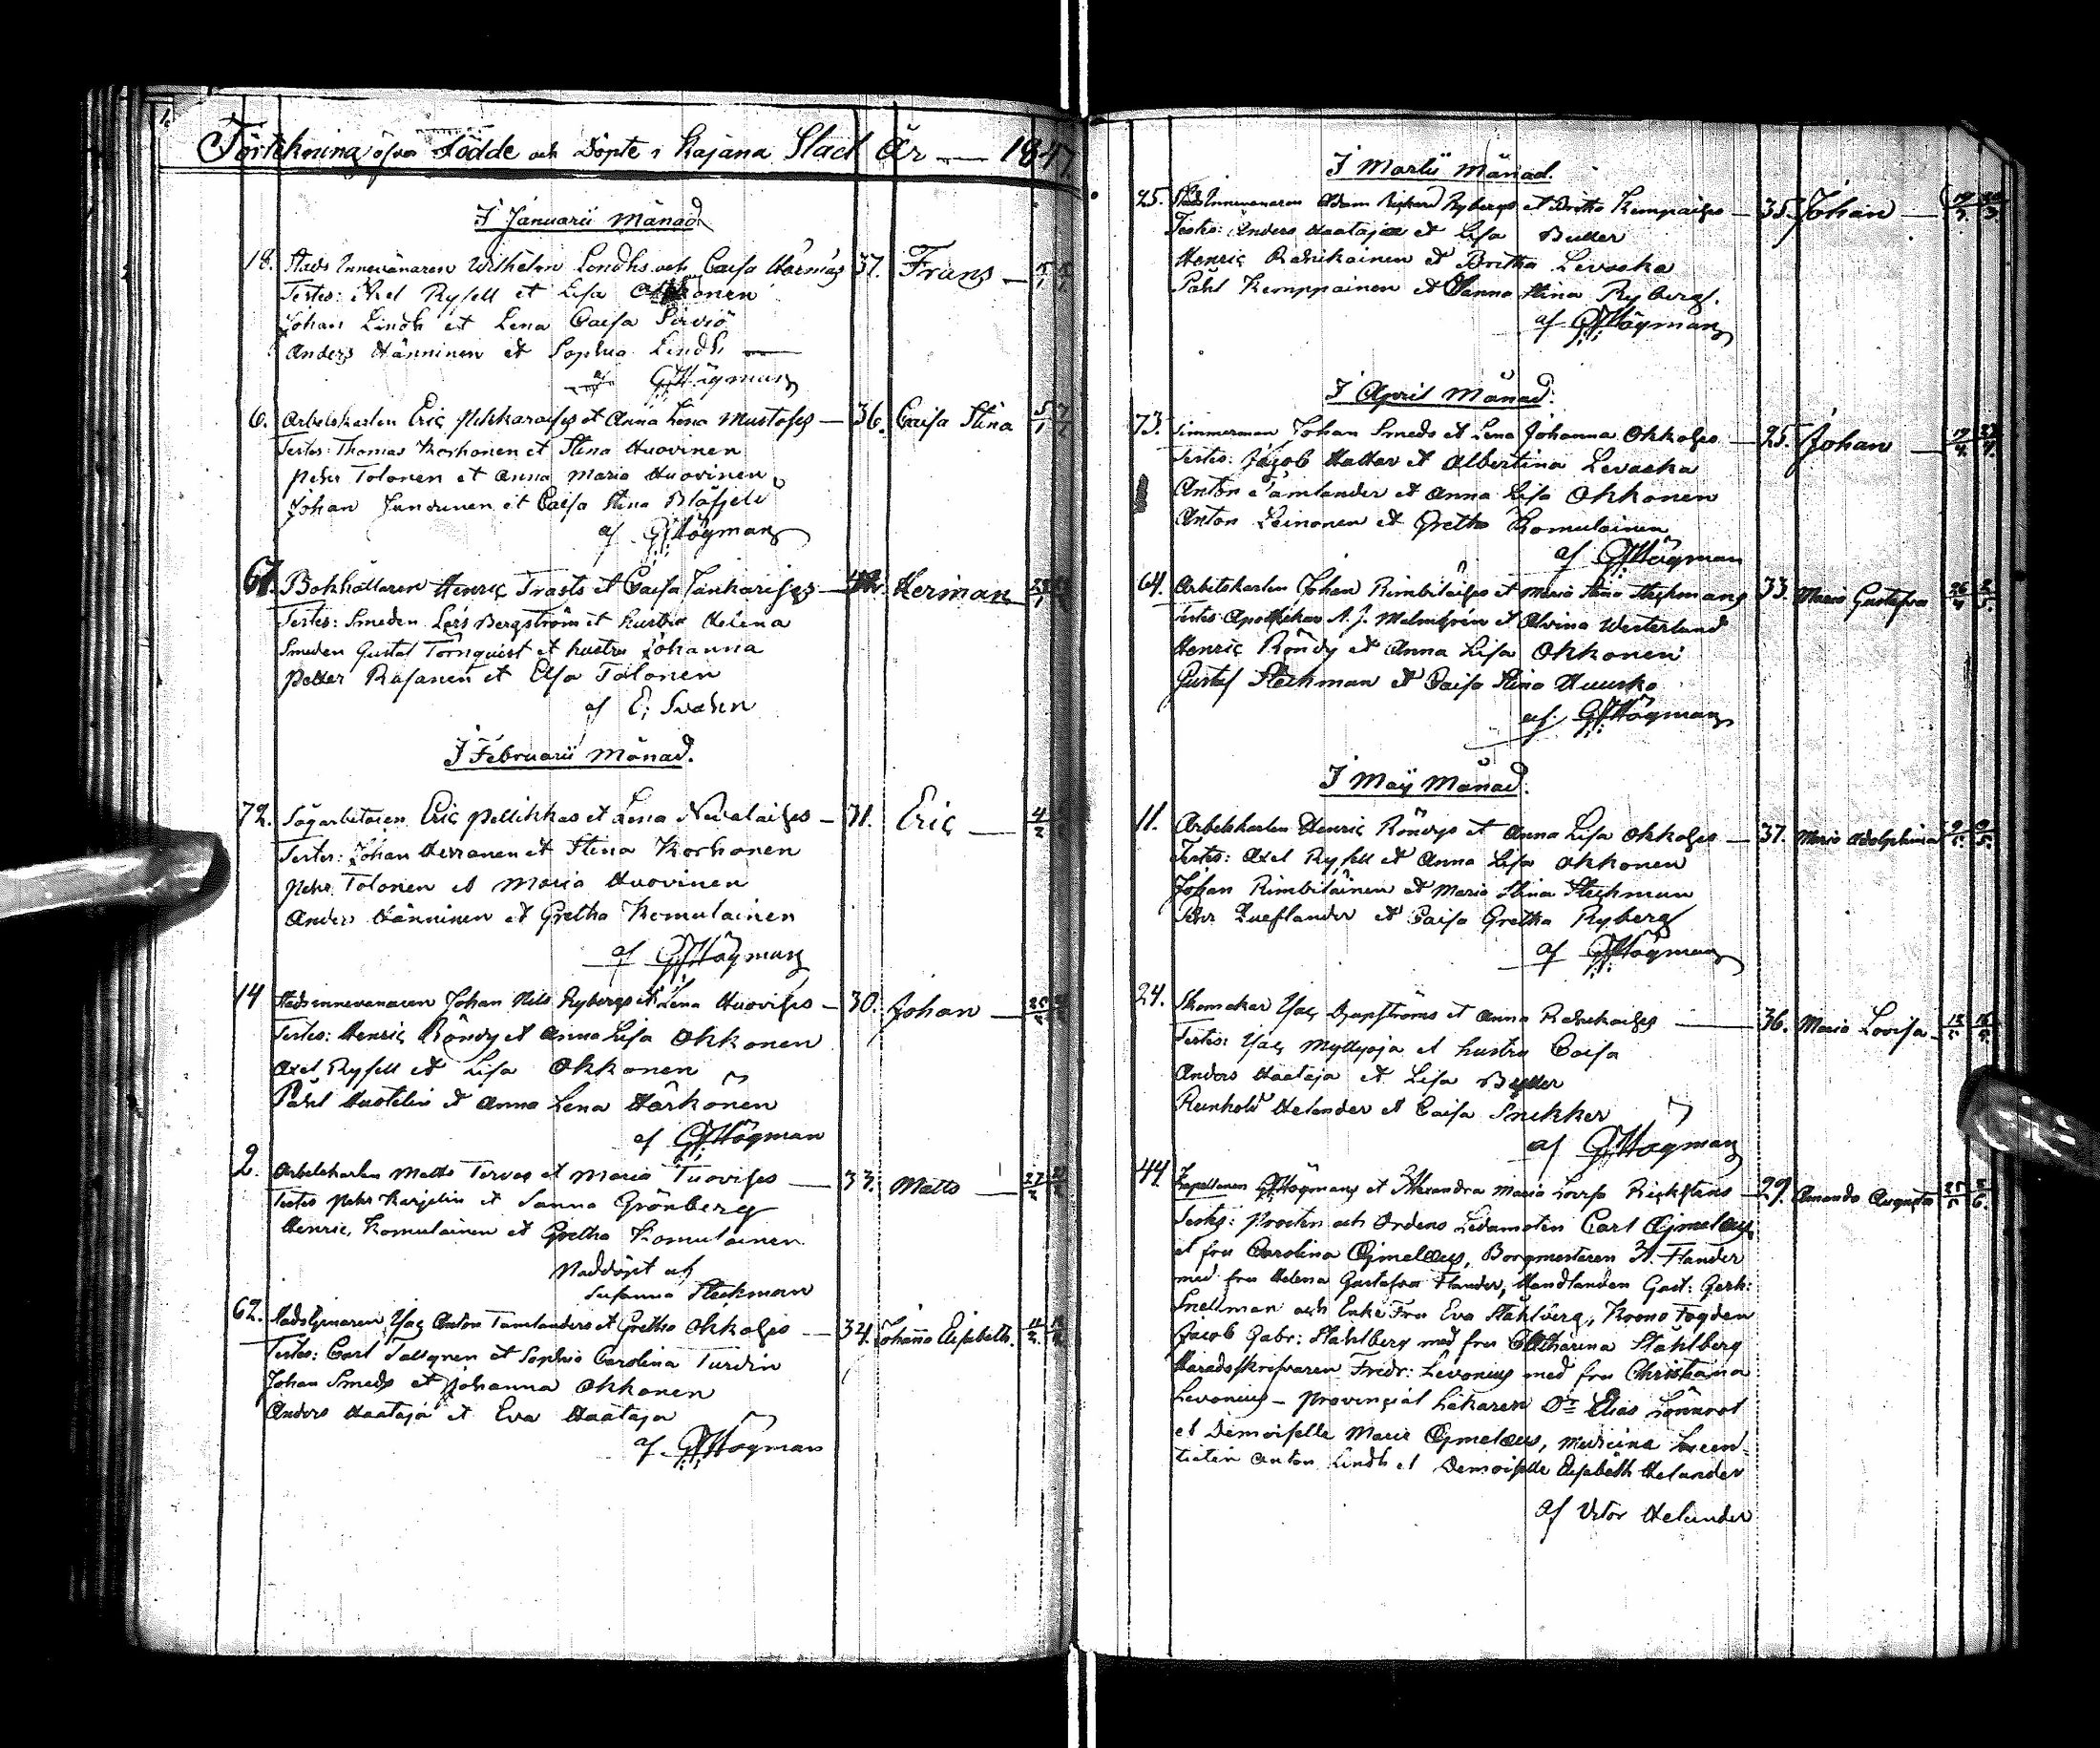 1.
Förtekning öfver Födde och Döpte i Kajana Stad År — 1847.
I Januarii Månad
18. Stads Innevånaren Wilhelm Lindhs och Caisa Härmäs 37. Frans — 5/1
Testes: Axel Rysell et Lisa Okkonen
Johan Lindh et Lena Caisa Sirviö
Anders Hänninen et Sophia Lindh —
af GHögman
6. Arbetskarlen Eric Pekkaraises et Anna Lena Mustoses — 36. Caisa Stina 5/1 7/1
Testes: Thomas Korhonen et Stina Huovinen
Pehr Tolonen et Anna Maria Huovinen
Johan Jundunen et Caisa Stina Blåfjeld
af GHögman
67. Bokhållaren Henric Trasts et Caisa Tankarises — Herman
Testes: Smeden Lars Bergström et hustru Helena
Smeden Gustaf Törnquist et hustru Johanna
Petter Räsänen et Elsa Tolonen
af E: Svahn
I Februarii Månad.
72. Sågarbetaren Eric Pellikkas et Lena Nevalaises — 31. Eric — 4/2
Testes: Johan Heiranen et Stina Korhonen
Pehr Tolonen et Maria Huovinen
Anders Hänninen et Gretha Komulainen
af GHögman
14 Stadsinnevånaren Johan Nils Rybergs et Lena Huovises — 30. Johan —
Testes: Henric Röndy et Anna Lisa Okkonen
Axel Rysell et Lisa Okkonen
Påhl Hustelin et Anna Lena Härkönen
af GHögman
2. Arbetskarlen Matts Tervos et Maria Tuovises — 33. Matts — 27/2
Testes Pehr Karjelin et Sanna Grönberg
Henric Komulainen et Gretha Komulainen
Nöddöpt af
Susanna Steckman
62. Stads Isac Anton Tamlanders et Gretha Okkoses — 34. Johanna Elisabeth.
Testes: Carl Tallgren et Sophia Carolina Turdin
Johan Smeds et Johanna Okkonen
Anders Haataja et Eva Haataja
af GHögman
I Martii Månad.
25. Stads Innevånaren Adam Rybergs et Britha Kempaises — 35. Johan — 19/3
Testes: Anders Haataja et Lisa Butler
Henric Karikainen et Britha Levaska
Påhl Kemppainen et Sanna Stina Ryberg.
af GHögman
I April Månad.
73. Timmerman Johan Smeds et Lena Johanna Okkoses — 25. Johan — 19/4
Testes: Jacob Hattar et Albertina Levaska
Anton Tamlander et Anna Lisa Okkonen
Anton Leinonen et Gretha Komulainen
af GHögman
64. Arbetskarlen Johan Rimbiläises et Maria Stina Steckmans 33. Maria Gustafva 26/4 2/5
Testes Apothekar A. J. Malmgren et Alvina Westerlund
Henric Röndy et Anna Lisa Okkonen
Gustaf Steckman et Caisa Stina Huusko
af GHögman
I Maij Månad.
11. Arbetskarlen Henric Röndys et Anna Lisa Okkoses — 37. Maria Adolphina 9/5 9/5
Testes: Axel Rysell et Anna Lisa Okkonen
Johan Rimbiläinen et Maria Stina Steckman
Pehr et Caisa Gretha Ryberg
af GHögman
24. Skomakar Isac et Anna — 36. Maria Lovisa —
Testes: Isac Myllyoja et hustru Caisa
Anders Haataja et Lisa Butler
Reinhold Helander et Caisa Snikker
af GHögman
44. Kapellanen GHögmans et Alexandra Maria Lovisa — 29. Amanda Augusta
Testes: Prosten och Ordens Ledamoten Carl Cajmelæus
et fru Carolina Cajmelæus, Borgmestaren H. Flander
med fru Helena Gustafva Flander, Handlanden Gust: Gerh:
Snellman och Enke Fru Eva Ståhlberg, Krono Fogden
Jacob Gabr: Ståhlberg med fru Catharina Ståhlberg
Haradsskrifvaren Fredr: Levonius med fru Christiana
Levonius — Provincial Läkaren Dr Elias Lönnrot
et Demoiselle Marie Cajmelæus, Medicine Licen-
tiaten Anton Lindh et Demoiselle Elisabeth Helander
af Victor Helander